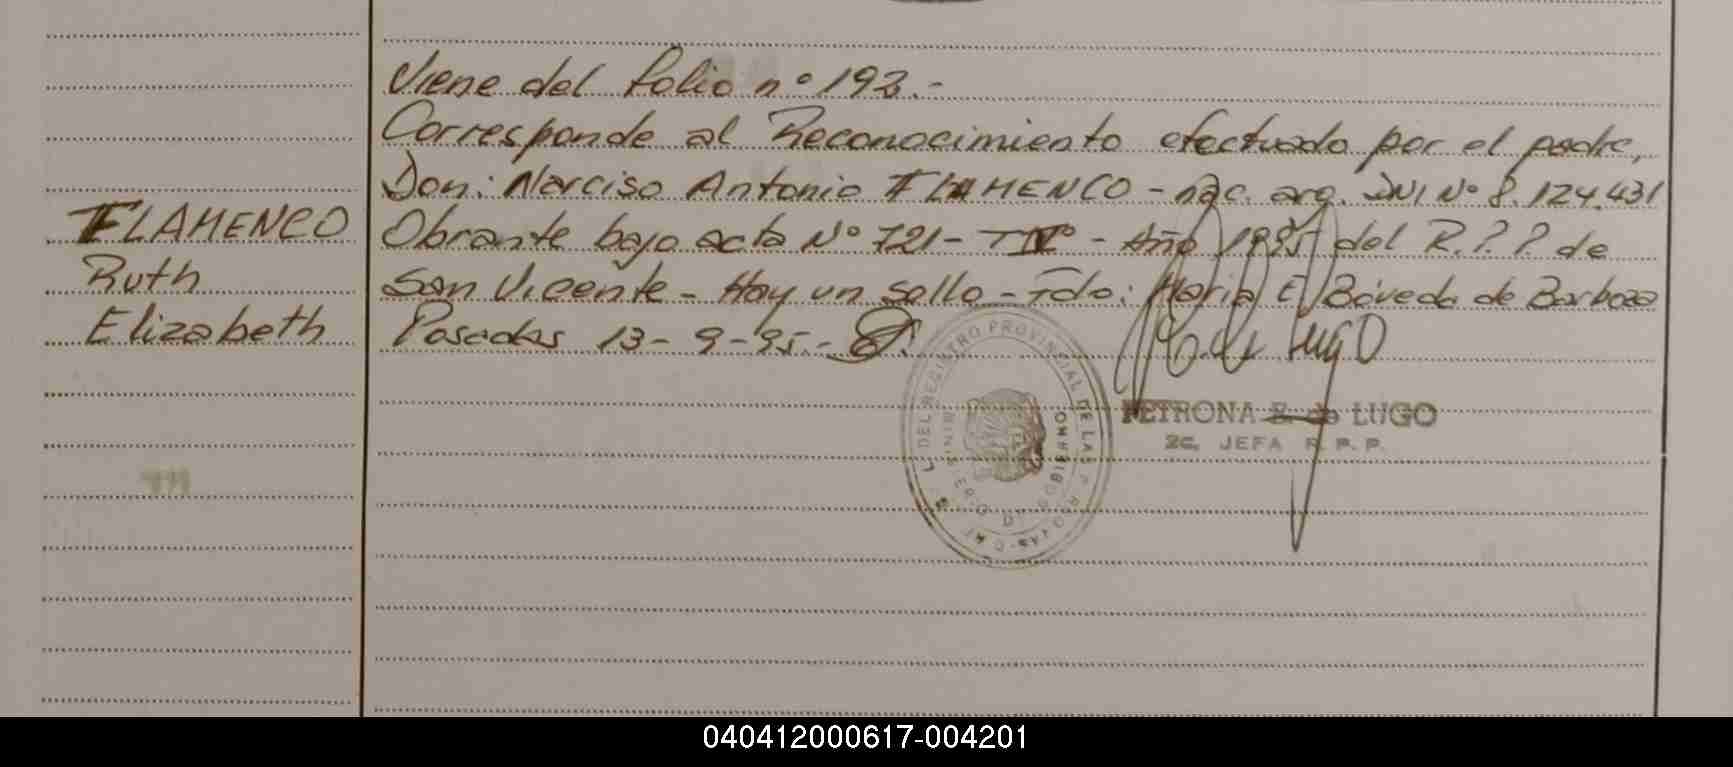 Viene del folio nº 193.-
Corresponde al Reconocimiento efectuado por el padre,
Don: Narciso Antonio FLAMENCO - nac. arg. DNI Nº 8.124.431
FLAMENCO
Ruth
Elizabeth
Obrante bajo acta Nº 721- T IVº - Año 1995 del R.P.P. de
San Vicente - Hay un sello - Fdo: Maria E. Bóveda de Barboza
Posadas 13-9-95.-
PETRONA E. de LUGO
2a. JEFA R.P.P.
DEL REGISTRO PROVINCIAL DE LAS PERSONAS
MINISTERIO DE GOBIERNO
040412000617-004201